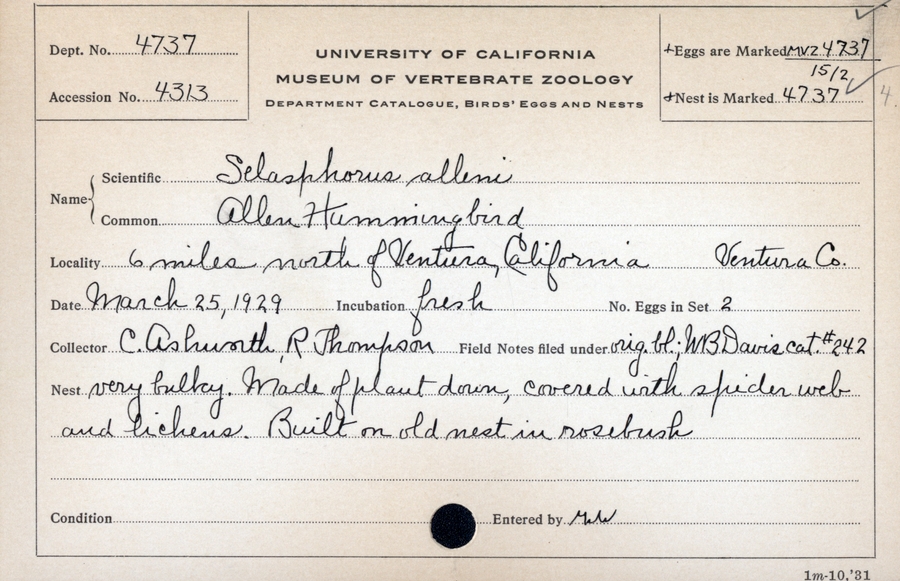 Dept. No. 4737
Accession No. 4313
UNIVERSITY OF CALIFORNIA
MUSEUM OF VERTEBRATE ZOOLOGY
DEPARTMENT CATALOGUE, BIRDS' EGGS AND NESTS
+Eggs are Marked MVZ 4737
15/2
+Nest is Marked 4737
4.
Name
Scientific Selasphorus alleni
Common Allen Hummingbird
Locality 6 miles north of Ventura, California Ventura Co.
Date March 25, 1929 Incubation fresh No. Eggs in Set 2
Collector C. Ashworth, R Thompson Field Notes filed under orig. bl; WB Davis cat. #242
Nest very bulky. Made of plant down, covered with spider web
and lichens. Built on old nest in rosebush
Condition Entered by
1m-10,'31